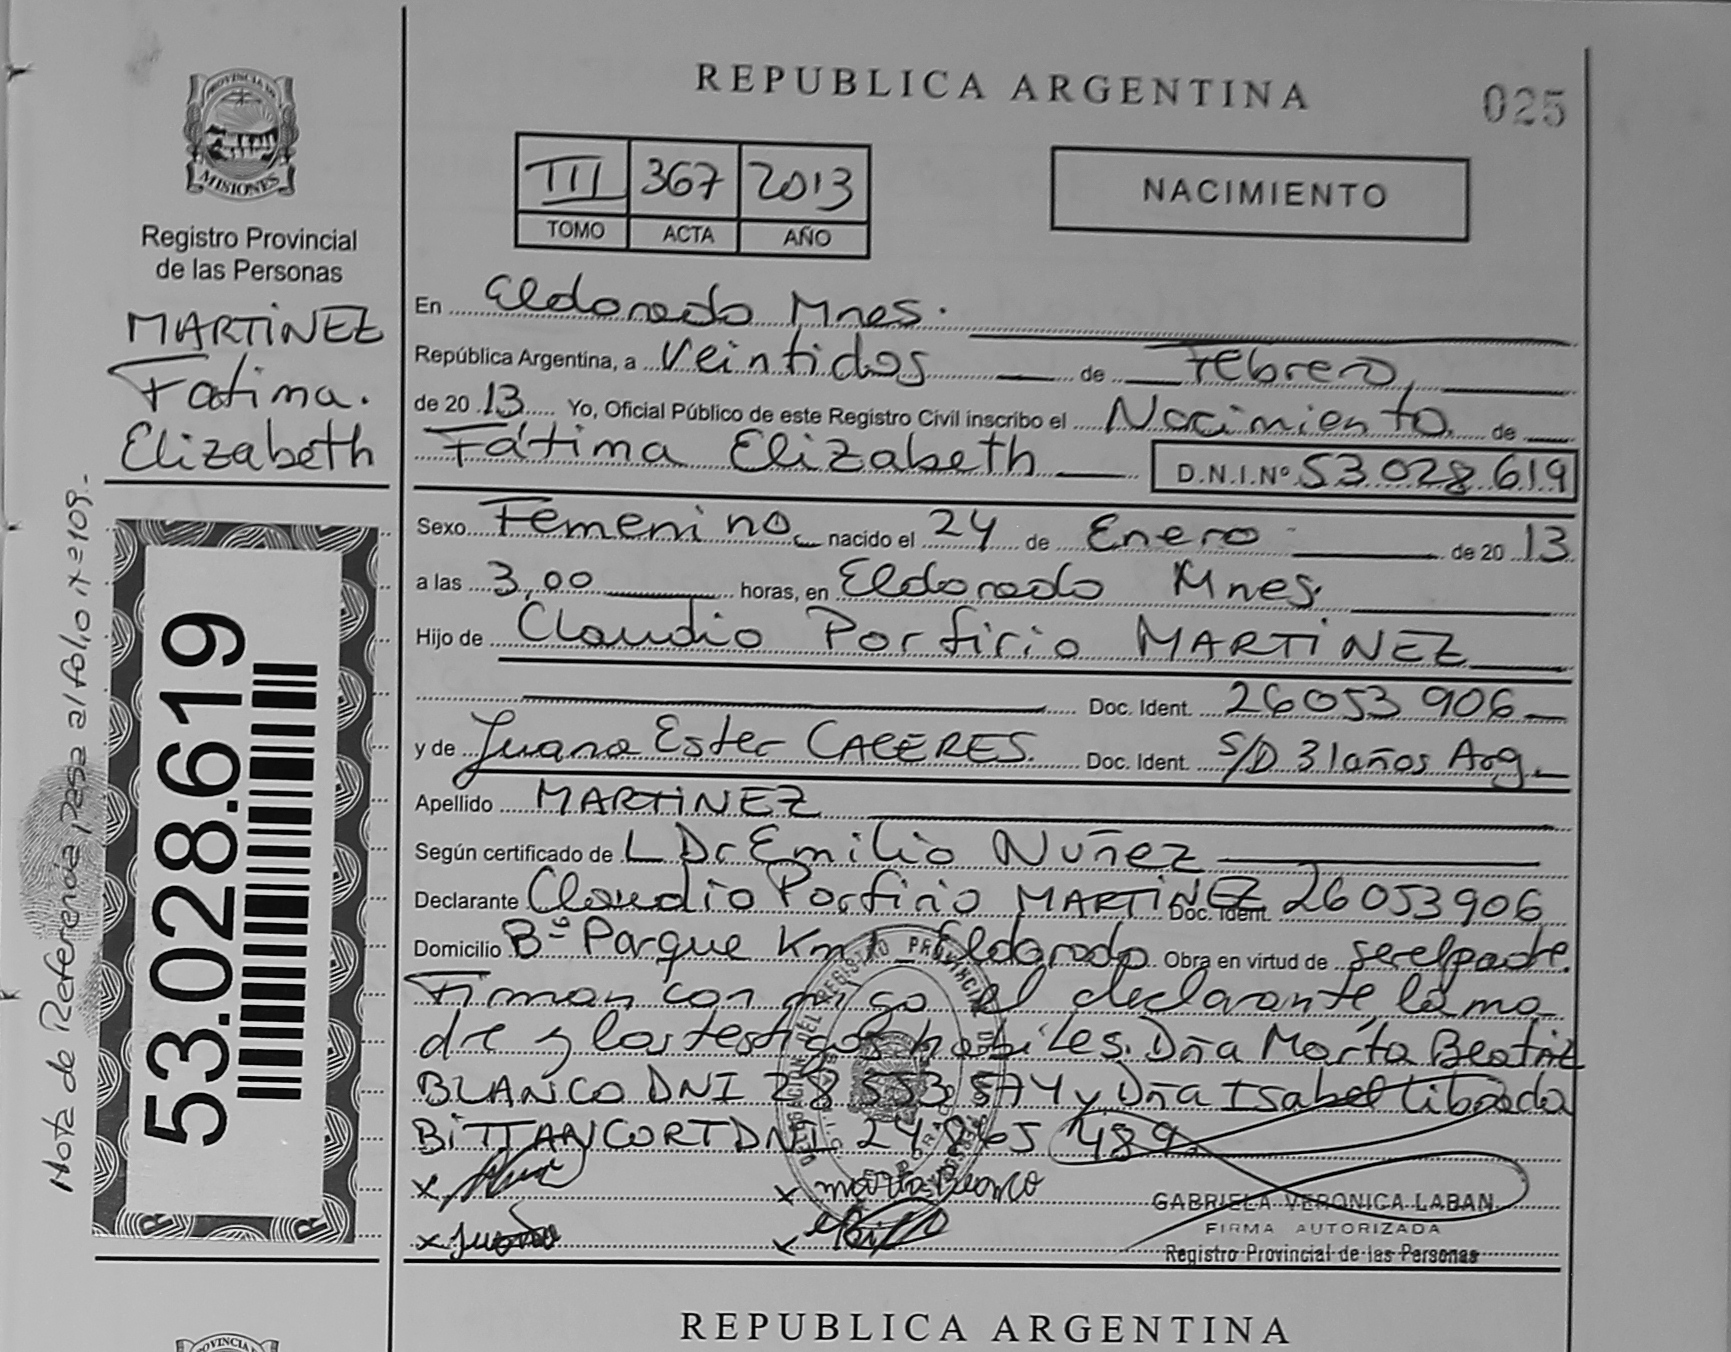 REPUBLICA ARGENTINA
025
PROVINCIA DE
MISIONES
Registro Provincial
de las Personas
MARTINEZ
Fatima.
Elizabeth
III 367 2013
TOMO ACTA AÑO
NACIMIENTO
En Eldorado Mnes.
República Argentina, a Veintidos de Febrero,
de 2013 Yo, Oficial Público de este Registro Civil inscribo el Nacimiento de
Fátima Elizabeth D.N.I.Nº 53.028.619
Sexo Femenino nacido el 24 de Enero de 2013
a las 3,00 horas, en Eldorado Mnes.
Hijo de Claudio Porfirio MARTINEZ
Doc. Ident. 26053906
y de Juana Ester CACERES. Doc. Ident. S/D 31años Arg.
Apellido MARTINEZ
Según certificado de L Dr Emilio Nuñez
Declarante Claudio Porfirio MARTINEZ Doc. Ident. 26053906
Domicilio Bº Parque Km1 Eldorado Obra en virtud de ser el padre.
Firman conmigo el declarante, la ma
dre y los testigos habiles. Dña Marta Beatriz
BLANCO DNI 28 553 574 y Dña Isabel Librada
BITTANCORT DNI 24 865 489
x x marta Blanco
x Juana x
GABRIELA VERONICA LABAN
FIRMA AUTORIZADA
Registro Provincial de las Personas
53.028.619
Nota de Referencia pasa al folio nº 109.-
REPUBLICA ARGENTINA
PROVINCIA